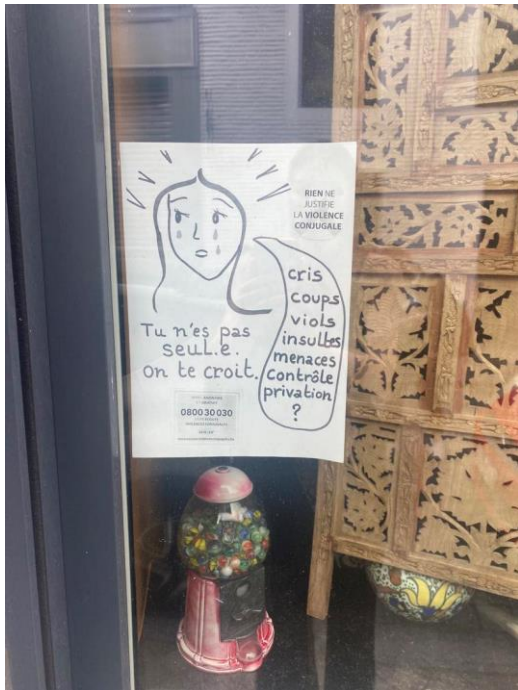 RIEN NE
JUSTIFIE
LA VIOLENCE
CONJUGALE
cris
coups
viols
insultes
menaces
contrôle
privation
?
Tu n'es pas
seul.e.
on te croit.
0800 30 030